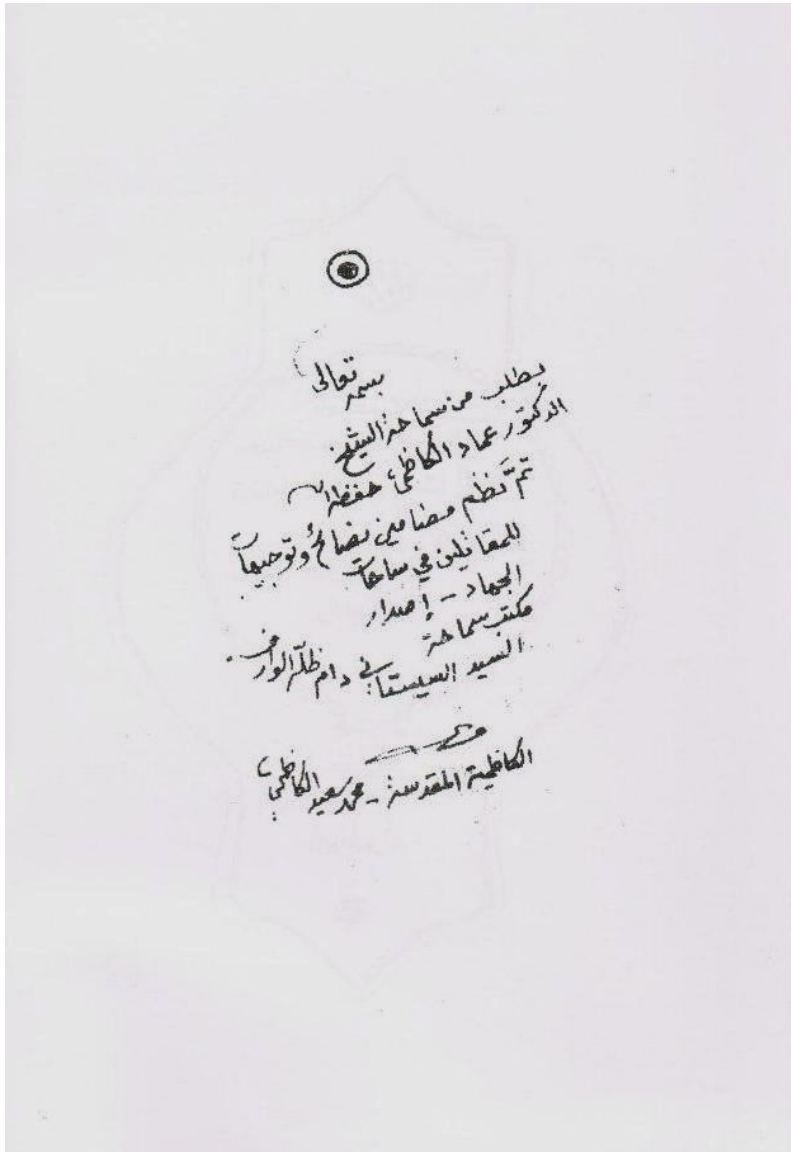 بسمه تعالى
بطلب من سماحة الشيخ
الدكتور عماد الكاظمي حفظه الله
تمَّ نظم مضامين نصائح وتوجيهات
للمقاتلين في ساحات
الجهاد - إصدار
مكتب سماحة
السيد السيستاني دام ظلّه الوارف.
الكاظمية المقدسة - محمد سعيد الكاظمي